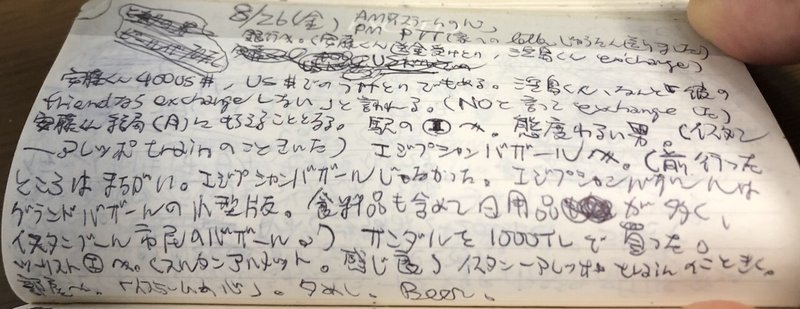 8/26(金) AM
PM PTT(家への
銀行へ。(安藤くん送金受けとり、浮島くん exchange)
安藤くん400US$, US$でのうけとりでもめる。浮島くん、なんと「彼の
friendだからexchangeしない」と言われる。(NOと言ってexchangeした)
安藤くん結局(月)にもらうこととなる。駅の i へ。態度わるい男。(イスタン
ーアレッポtrainのこときいた) エジプシャンバザールへ。(前行った
ところはまちがい。エジプシャンバザールじゃなかった。エジプシャンバザールは
グランドバザールの小型版。食料品も含めて日用品が多く、
イスタンブール市民のバザール。) サンダルを1000TLで買った。
ツーリスト i へ。(スルタンアルメット。感じ良) イスタンーアレッポtrainのこときく。
部屋へ。夕めし。Beer。